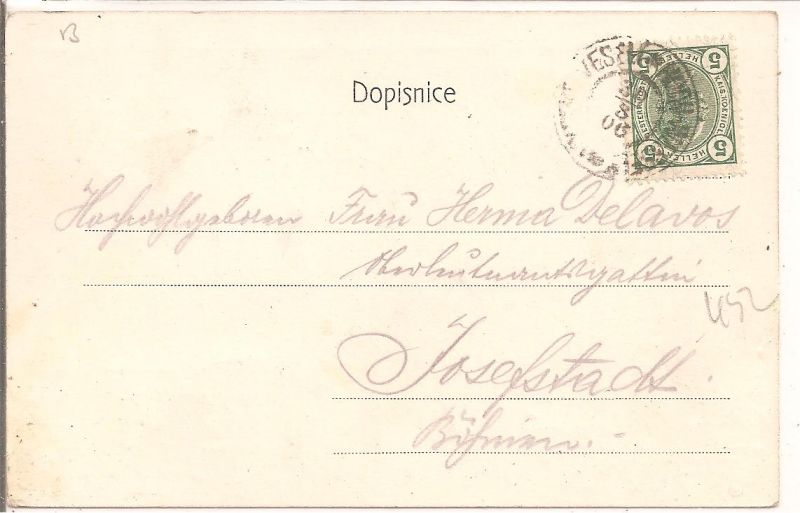 13
Dopisnice
WESELY
5 HELLER 5
5 HELLER 5
Hochwohlgeboren Frau Herma Delavos
Oberleutnantsgattin
452
Josefstadt.
Böhmen.-